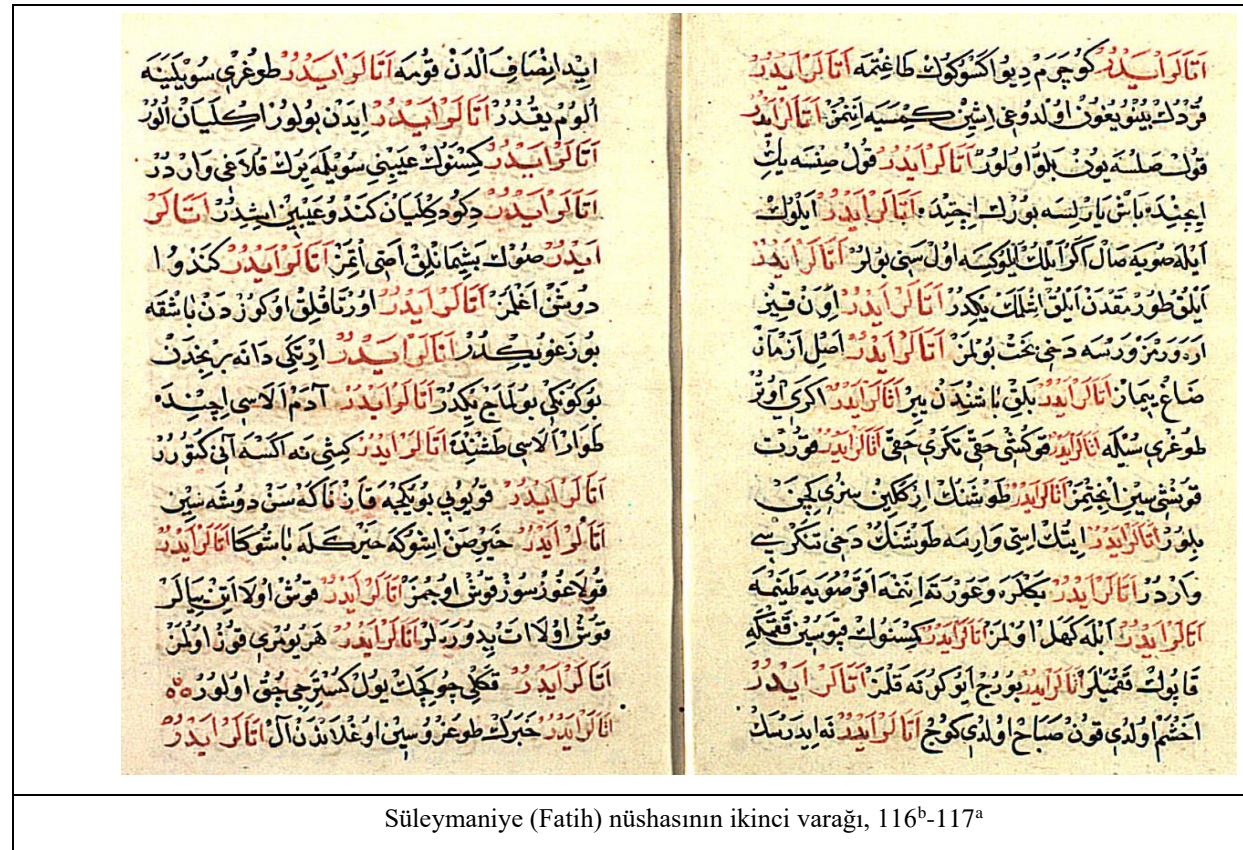 اَتَالَرْ اَيِدُرْ كُوچَرَمْ دِيُو اكسُوكُوكْ طَاغِتْمَه اَتَالَرْ اَيِدُرْ
قُرْدُكْ اُولْدُوغِى اِشِنْ كِمْسَيَه اِتْمَزْ اَتَالَرْ اَيِدُرْ
قُولْ صَلْسَه يُونْ بَلُو اُولُورْ اَتَالَرْ اَيِدُرْ قُولْ صِنْسَه يِكْ
اِيچِنْدَه بَاشْ يَارِلْسَه بُورْكْ اِچِنْدَه اَتَالَرْ اَيِدُرْ اَيْلُوكْ
اَيْلَه صُويَه صَالْ اَكَرْ اُولْ سَنِى بُولُرْ اَتَالَرْ اَيِدُرْ
اَيْلُقْ طُورْمَقْدَنْ اَيْلُقْ اِشْلَمَكْ يَكْدِرْ اَتَالَرْ اَيِدُرْ اِوَنْ قِيزْ
اَرَه وَرْمَزْ وَرْسَه دَخِى بَخْتْ بُولْمَزْ اَتَالَرْ اَيِدُرْ اَصِلْ اَزْمَازْ
اَتَالَرْ اَيِدُرْ بَلِقْ بَاشِنْدَنْ اَتَالَرْ اَيِدُرْ اَكْرِى اُوتُرْ
طُوغْرِى سُيْلَه اَتَالَرْ اَيِدُرْ قُوكْشِى حَقِّى تَكْرِى حَقِّى اَتَالَرْ اَيِدُرْ قُورْتْ
قُونْشِى سِينْ اِنْجِتْمَزْ اَتَالَرْ اَيِدُرْ طَوْشَنُكْ اَرْكَكِينْ سِزِى كِچِنْ
بِلُورْ اَتَالَرْ اَيِدُرْ اِيتُكْ اِسِّى وَارِمَه طَوْشَنُكْ دَخِى تَكْرِيسِى
وَارْدُرْ اَتَالَرْ اَيِدُرْ بَكْلَرَه وَعَوْرَتَه اِنَنْمَه اَقَرْ صُويَه طَيَنْمَه
اَتَالَرْ اَيِدُرْ اَبْلَه كَهَلْ اُولْمَزْ اَتَالَرْ اَيِدُرْ كِمْسَنُوكْ قَپُوسِينْ قَقْمَكَه
قَاپُوكْ قَقْمَيَلَرْ اَتَالَرْ اَيِدُرْ بُورْجْ قَلْمَزْ اَتَالَرْ اَيِدُرْ
اَخْشَمْ اُولْدِى قُونْ صَبَاحْ اُولْدِى كُوچْ اَتَالَرْ اَيِدُرْ نَه اِيدَرْسَكْ
اِيْدْ اِنْصَافْ اَلْدَنْ قُومَه اَتَالَرْ اَيِدُرْ طُوغْرِى سُويْلَيَنَه
اُلُومْ يُقْدُرْ اَتَالَرْ اَيِدُرْ اِيدَنْ بُولُورْ اِكْلَيَانْ اَلُورْ
اَتَالَرْ اَيِدُرْ كِسَنُوكْ عَيْبِنِى سُويْلَمَه يِرُكْ قُلَاغِى وَارْدُرْ
اَتَالَرْ اَيِدُرْ دِكُودِكْلَيَانْ كَنْدُو عَيْبِينْ اِيشِدُرْ اَتَالَرْ
اَيِدُرْ صُوكْ پَشِيمَانْلِقْ اَصِّى اِتْمَزْ اَتَالَرْ اَيِدُرْ كَنْدُو ا
دُوشَنْ اَغْلَمَزْ اَتَالَرْ اَيِدُرْ اُورْتَاقْلِقْ اُوكُوزْدَنْ بَاشْقَه
بُوزَاغُو يَكْدُرْ اَتَالَرْ اَيِدُرْ اِرْتَكِى دَانَه بِرِنْجِدَنْ
بُوكُونْكِى بُولَمَاجْ يَكْدُرْ اَتَالَرْ اَيِدُرْ آدَمْ اَلَاسِى اِچِنْدَه
طَوَارْ اَلَاسِى طَشْنِدَه اَتَالَرْ اَيِدُرْ كِشِى نَه اَكْسَه آنِى كُتُورُرْ
اَتَالَرْ اَيِدُرْ قُويُويِى بُويُكْجَه قَازْ تَاكَه سَنْ دُوشَه سِينْ
اَتَالَرْ اَيِدُرْ خَيِرْ صَنْ اِشُوكَه خَيِرْ كَلَه بَاشُوكَا اَتَالَرْ اَيِدُرْ
قُولَاغُوزْسُوزْ قُوشْ اُوچْمَزْ اَتَالَرْ اَيِدُرْ قُوشْ اُولَا اَتِنْ يِيَالَرْ
قُوشْ اُولَا اَتْ يِدُورَه لَرْ اَتَالَرْ اَيِدُرْ هَرْ يُومْرِى قُوزْ اُولْمَزْ
اَتَالَرْ اَيِدُرْ قَكْلِى چُو كِچَكْ يُولْ كُسْتَرِجِى چُقْ اُولُورْ
اَتَالَرْ اَيِدُرْ خَبَرُكْ طُوغْرُوسِنِى اُوغْلَانْدَنْ آلْ اَتَالَرْ اَيِدُرْ
Süleymaniye (Fatih) nüshasının ikinci varağı, 116ᵇ-117ᵃ